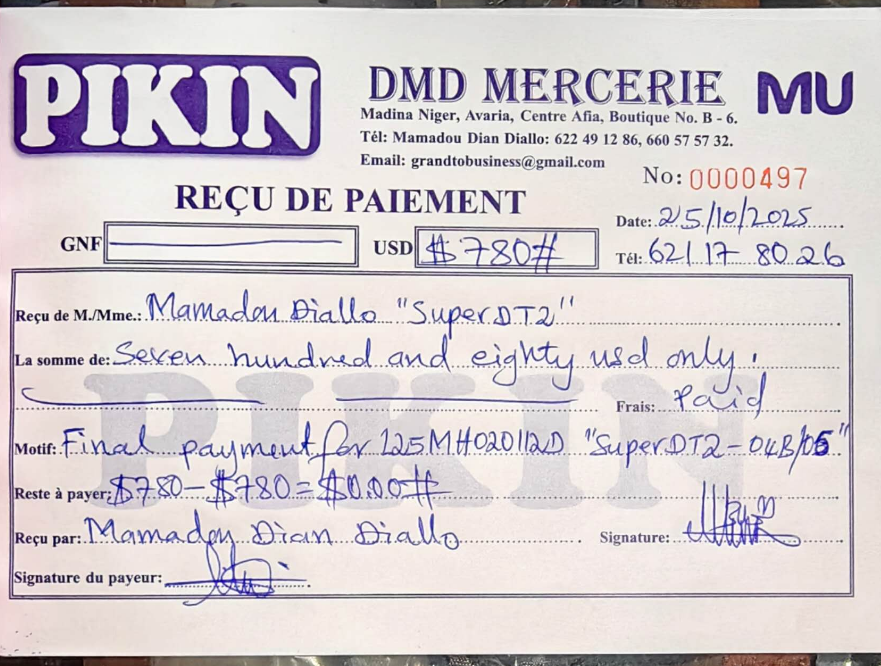 PIKIN
DMD MERCERIE
MU
Madina Niger, Avaria, Centre Afia, Boutique No. B - 6.
Tél: Mamadou Dian Diallo: 622 49 12 86, 660 57 57 32.
Email: grandtobusiness@gmail.com
No: 0000497
REÇU DE PAIEMENT
Date: 25/10/2025
GNF
USD $780#
Tél: 621 17 80 26
Reçu de M./Mme.: Mamadou Diallo "SuperDT2"
La somme de: Seven hundred and eighty usd only.
Frais: Paid
Motif: Final payment for 125MH020112D "SuperDT2-04B/05"
Reste à payer: $780-$780=$0.00#
Reçu par: Mamadou Dian Diallo
Signature:
Signature du payeur:
PIKIN